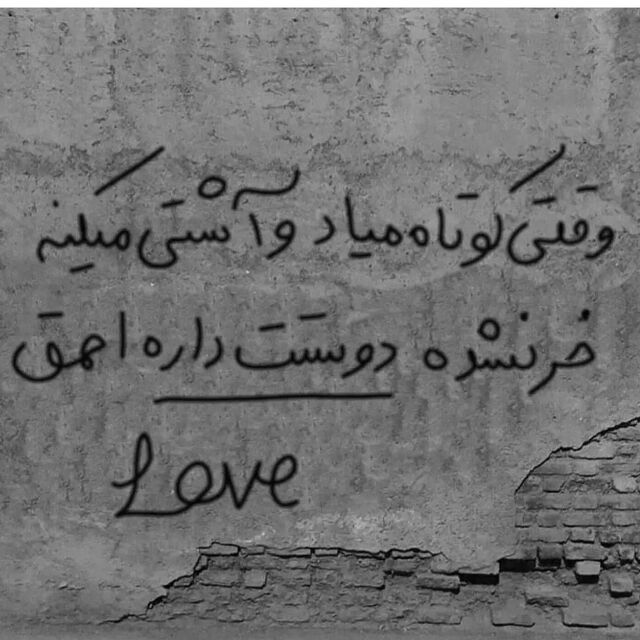 وقتی کوتاه میاد و آشتی میکنه
خر نشده دوستت داره احمق
Love